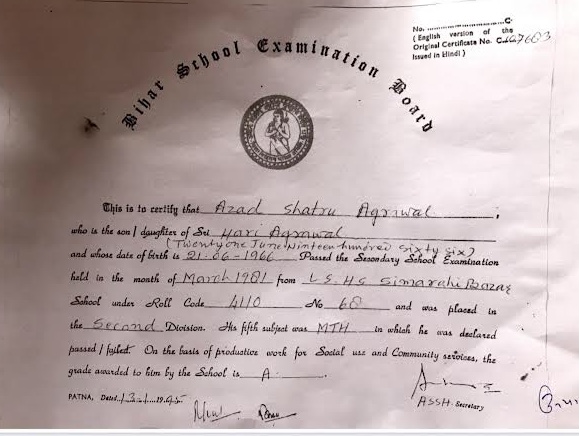 No. ........................C
( English version of the
Original Certificate No. C
Issued in Hindi )
Bihar School Examination Board
This is to certify that Azad Shatru Agrawal ;
who is the son / daughter of Sri Hari Agrawal
(Twenty one June Ninteen hundred Sixty Six)
and whose date of birth is 21-06-1966 Passed the Secondary School Examination
held in the month of March 1981 from L S. HS Simarahi Bazar
School under Roll Code 4110 No 68 and was placed in
the Second Division. His fifth subject was MTH in which he was declared
passed / failed. On the basis of productive work for Social use and Community services, the
grade awarded to him by the School is A
ASSH. Secretary
PATNA, Dated